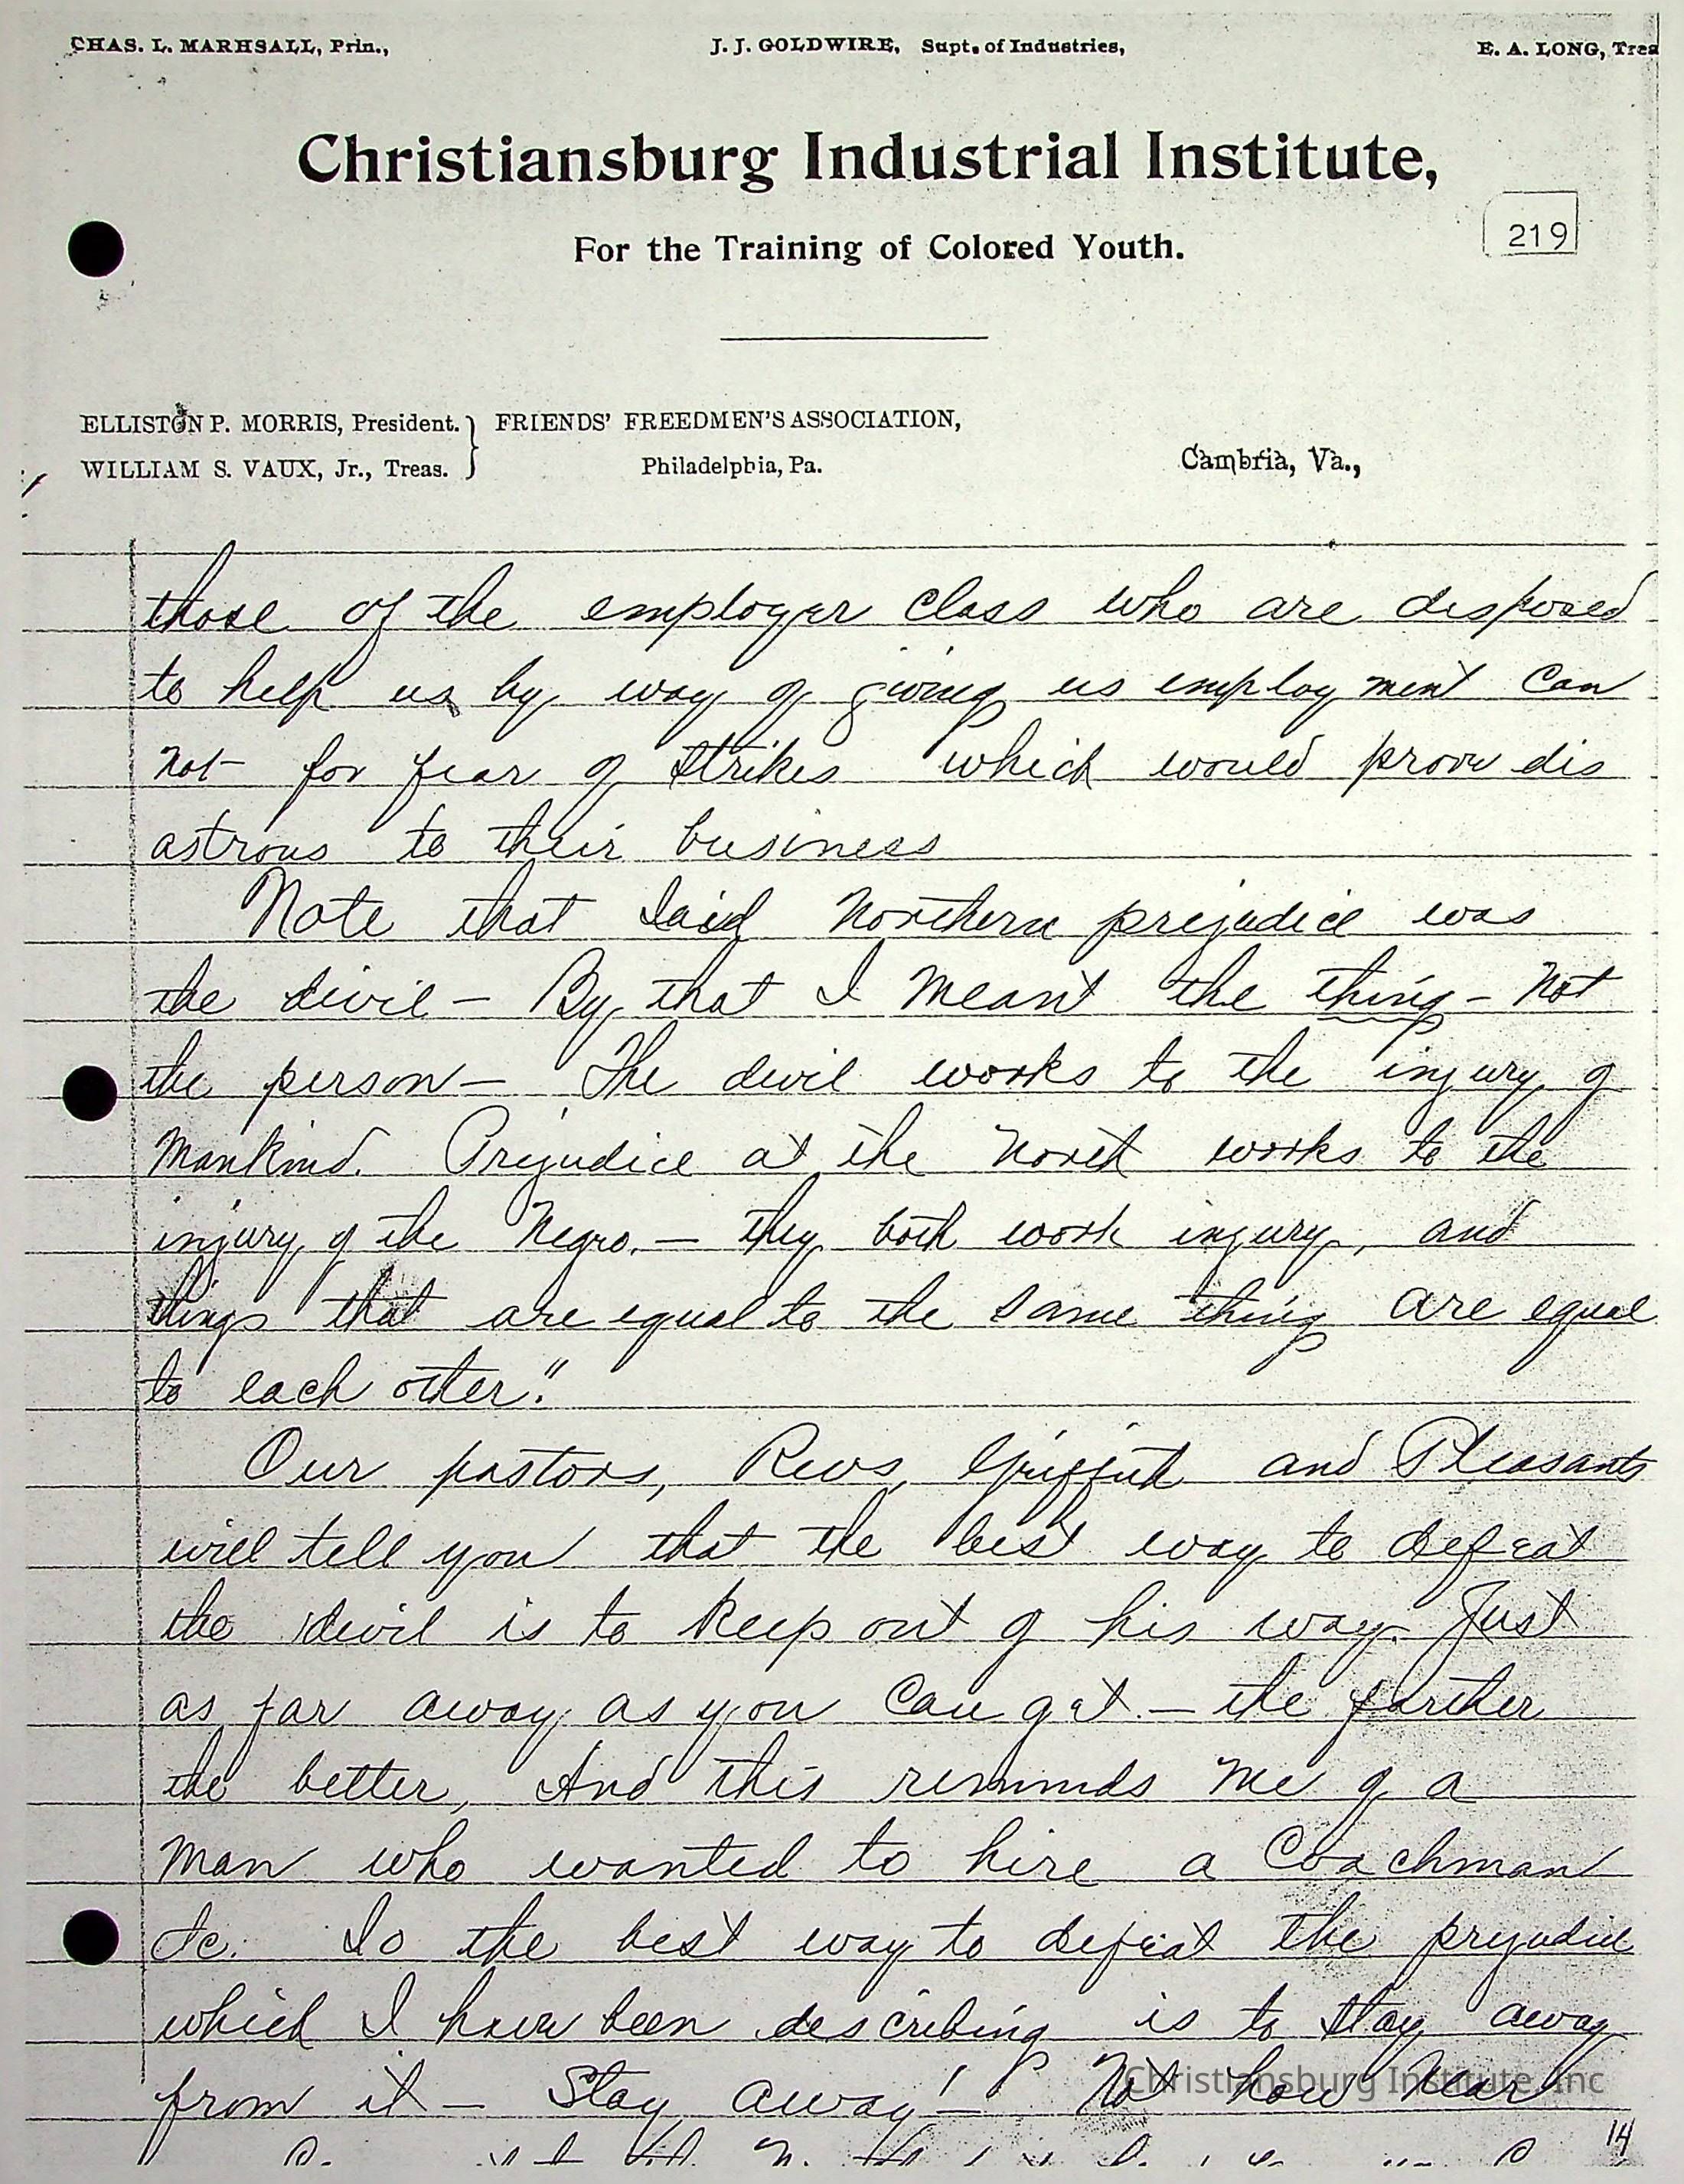 CHAS. L. MARHSALL, Prin., J. J. GOLDWIRE, Supt. of Industries, E. A. LONG, Trea
Christiansburg Industrial Institute,
219
For the Training of Colored Youth.
ELLISTON P. MORRIS, President. } FRIENDS' FREEDMEN'S ASSOCIATION,
WILLIAM S. VAUX, Jr., Treas. Philadelphia, Pa. Cambria, Va.,
those of the employer class who are disposed
to help us by way of giving us employment can
not for fear of strikes which would prove dis
astrous to their business
Note that said Northern prejudice was
the devil — By that I meant the thing — Not
the person — The devil works to the injury of
Mankind. Prejudice at the North works to the
injury of the Negro. — they both work injury, and
things that are equal to the same thing are equal
to each other."
Our pastors, Revs, Griffith and Pleasants
will tell you that the best way to defeat
the devil is to keep out of his way. Just
as far away as you can get — the farther
the better, And this reminds me of a
man who wanted to hire a Coachman
&c. So the best way to defeat the prejudice
which I have been describing is to stay away
from it — Stay away! — Not how near
Christiansburg Institute, Inc
14